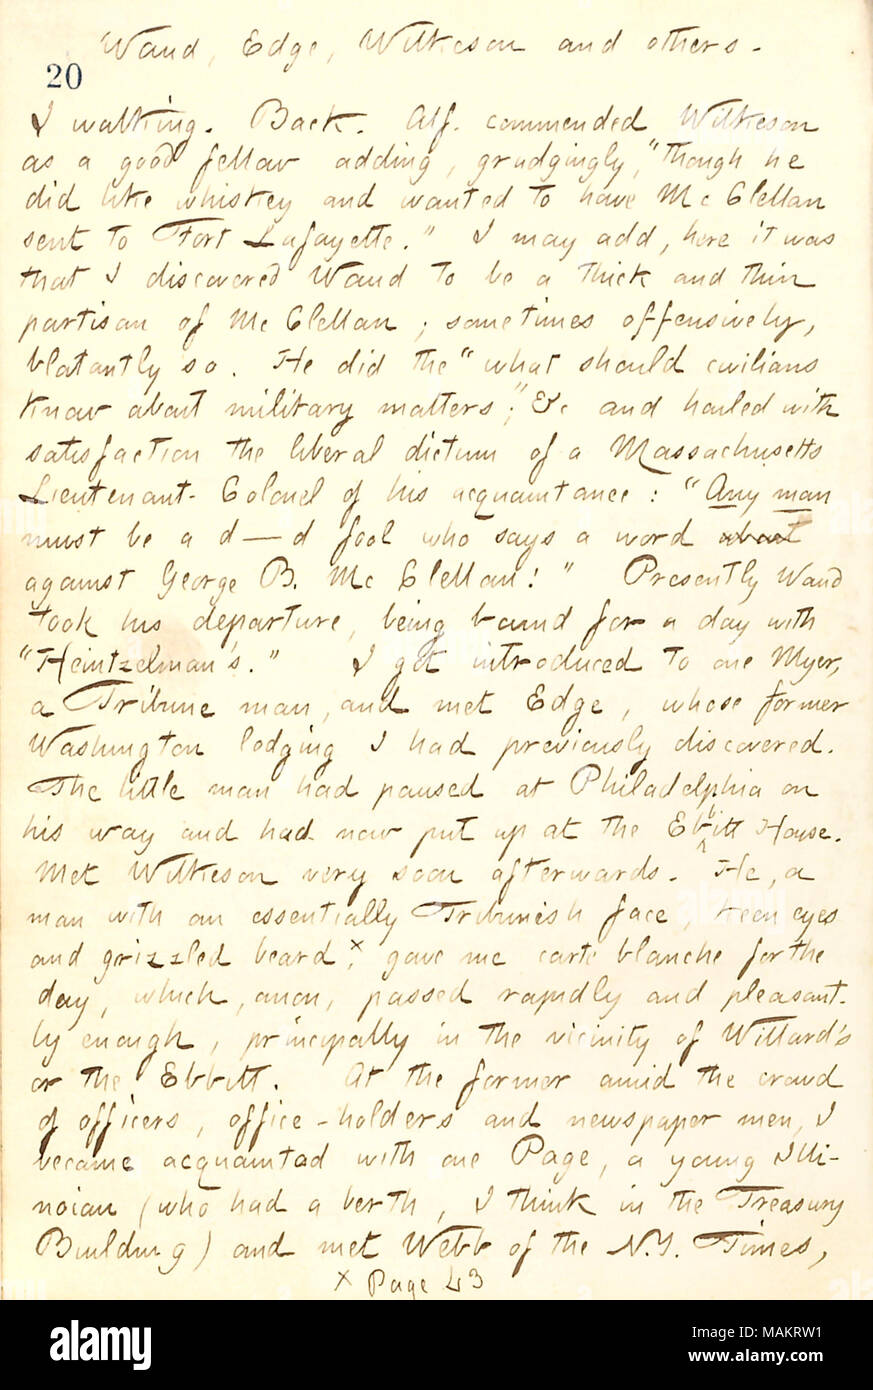 Waud, Edge, Wilkeson and others.
20
I walking. Back. Alf. commended Wilkeson
as a good fellow adding, grudgingly, "though he
did like whiskey and wanted to have Mc Clellan
sent to Fort Lafayette." I may add, here it was
that I discovered Waud to be a thick and thin
partisan of Mc Clellan; sometimes offensively,
blatantly so. He did the "what should civilians
know about military matters;" &c and hailed with
satisfaction the liberal dictum of a Massachusetts
Lieutenant-Colonel of his acquaintance: "Any man
must be a d—d fool who says a word about
against George B. Mc Clellan!" Presently Waud
took his departure, being bound for a day with
"Heintzelman's." I got introduced to one Myer,
a Tribune man, and met Edge, whose former
Washington lodging I had previously discovered.
The little man had paused at Philadelphia on
his way and had now put up at the Ebbitt House.
Met Wilkeson very soon afterwards. He, a
man with an essentially Tribuneish face, keen eyes
and grizzled beard,x gave me carte blanche for the
day, which, anon, passed rapidly and pleasant-
ly enough, principally in the vicinity of Willard's
or the Ebbitt. At the former amid the crowd
of officers, office-holders and newspaper men, I
became acquainted with one Page, a young Illi-
noian (who had a berth, I think in the Treasury
Building) and met Webb of the N.Y. Times,
x Page 43
alamy
Image ID: MAKRW1
www.alamy.com